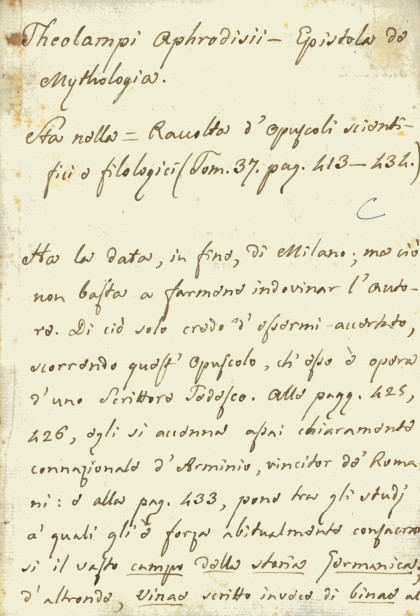 Theolampi Aphrodisii — Epistola de
Mythologia.
Sta nella = Raccolta d'Opuscoli scienti-
fici e filologici (Tom. 37. pag. 413 — 434.)
C
Ha la data, in fine, di Milano; ma ciò
non basta a farmene indovinar l'Auto-
re. Di ciò solo credo d'essermi accertato,
scorrendo quest'Opuscolo, ch'esso è opera
d'uno Scrittore Tedesco. Alle pagg. 425,
426, egli si accenna assai chiaramente
connazionale d'Arminio, vincitor de' Roma-
ni: e alla pag. 433, pone tra gli studj
a' quali gli è forza abitualmente consacrar
si il vasto campo della storia Germanica;
d'altronde, vinas scritto invece di binas a